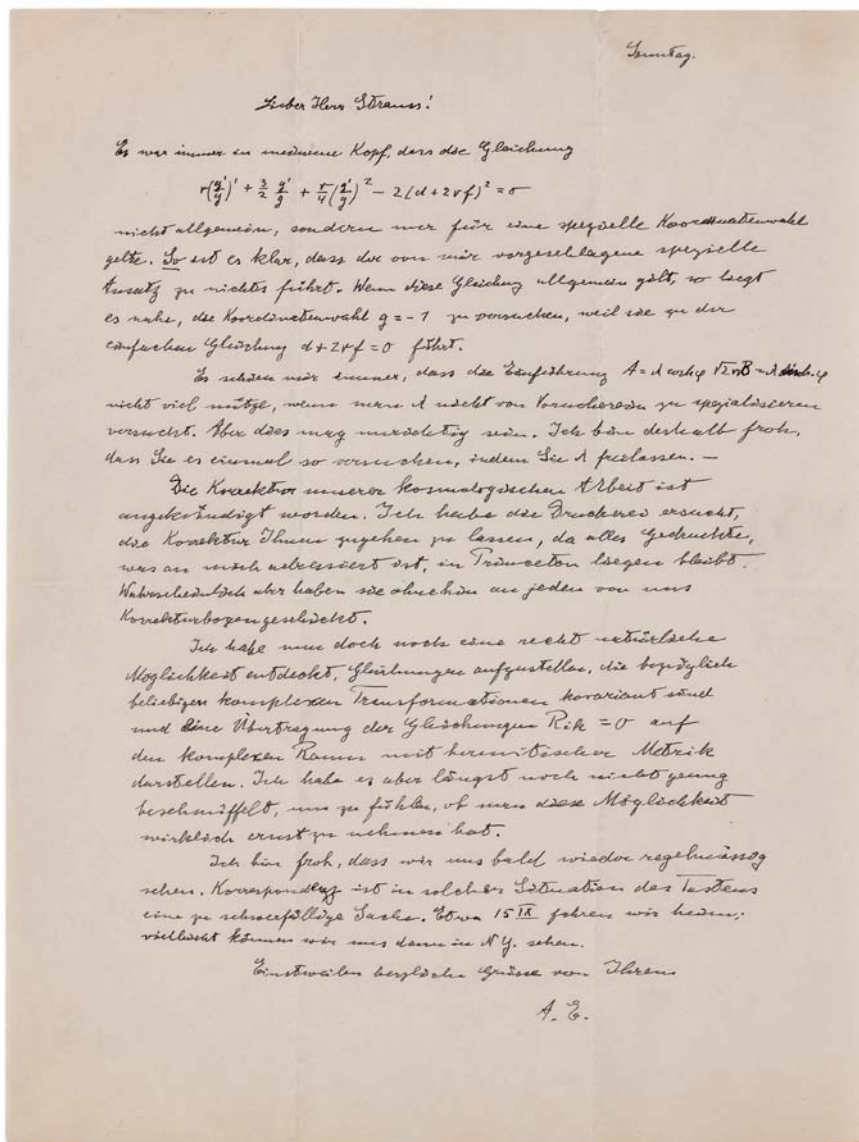 Sonntag.
Lieber Herr Strauss!
Es war immer in meinem Kopf, dass die Gleichung
r(g'/g)' + 3/2 g'/g + r/4 (g'/g)² − 2(d + 2rf)² = 0
nicht allgemein, sondern nur für eine spezielle Koordinatenwahl
gelte. So ist es klar, dass der von mir vorgeschlagene spezielle
Ansatz zu nichts führt. Wenn diese Gleichung allgemein gilt, so liegt
es nahe, die Koordinatenwahl g = − 1 zu versuchen, weil sie zu der
einfachen Gleichung d + 2rf = 0 führt.
Es schien mir immer, dass die Einführung A = λ coshφ √2rB = λ sinh φ
nicht viel nütze, wenn man λ nicht von Vornherein zu spezialisieren
versucht. Aber dies mag unrichtig sein. Ich bin deshalb froh,
dass Sie es einmal so versuchen, indem Sie λ freilassen. –
Die Korrektur unserer kosmologischen Arbeit ist
angekündigt worden. Ich habe die Druckerei ersucht,
die Korrektur Ihnen zugehen zu lassen, da alles Gedruckte,
was an mich adressiert ist, in Princeton liegen bleibt.
Wahrscheinlich aber haben sie ohnehin an jeden von uns
Korrekturbogen geschickt.
Ich habe nun doch noch eine recht natürliche
Möglichkeit entdeckt, Gleichungen aufzustellen, die bezüglich
beliebigen komplexen Transformationen kovariant sind
und eine Übertragung der Gleichungen Rik = 0 auf
den komplexen Raum mit hermitischer Metrik
darstellen. Ich habe es aber längst noch nicht genug
beschnüffelt, um zu fühlen, ob man diese Möglichkeit
wirklich ernst zu nehmen hat.
Ich bin froh, dass wir uns bald wieder regelmässig
sehen. Korrespondenz ist in solcher Situation des Tastens
eine zu schwerfällige Sache. Etwa 15 IX fahren wir heim;
vielleicht können wir uns dann in N Y. sehen.
Einstweilen herzliche Grüsse von Ihrem
A. E.